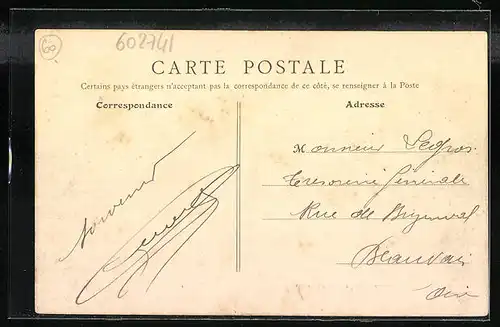 60
602741
CARTE POSTALE
Certains pays étrangers n'acceptant pas la correspondance de ce côté, se renseigner à la Poste
Correspondance
Adresse
Monsieur Legros
Tresorerie Generale
Rue de
Beauvais
Oise
Souvenir